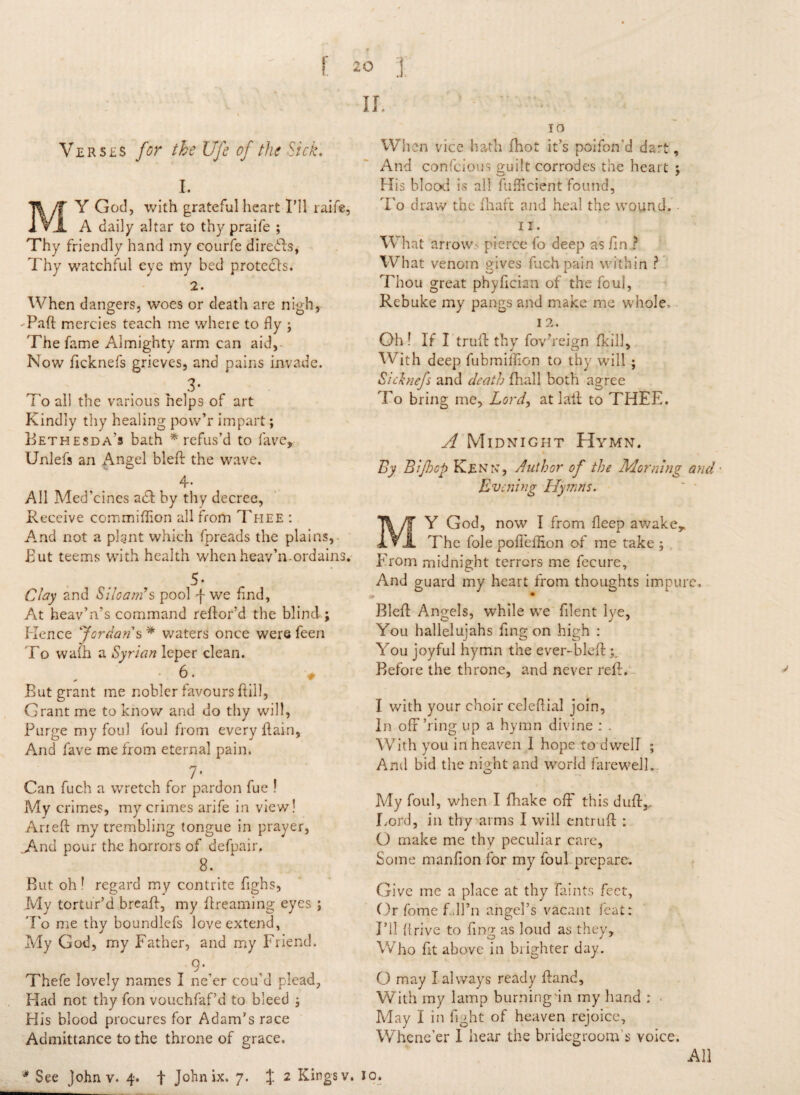 [ 20 ]
II.
VERSES for the Uſe of the Sick.
I.
MY God, with grateful heart I'll raiſe,
A daily altar to thy praiſe ;
Thy friendly hand my courſe directs,
Thy watchful eye my bed protects.
2.
When dangers, woes or death are nigh,
Paſt mercies teach me where to fly ;
The ſame Almighty arm can aid,
Now ſickneſs grieves, and pains invade.
3.
To all the various helps of art
Kindly thy healing pow'r impart ;
BETHESDA's bath * refus'd to ſave,
Unleſs an Angel bleſt the wave.
4.
All Med'cines act by thy decree,
Receive commiſſion all from THEE :
And not a plant which ſpreads the plains,
But teems with health when heav'n ordains.
5.
Clay and Siloam's pool † we find,
At heav'n's command reſtor'd the blind ;
Hence Jordan's * waters once were ſeen
To waſh a Syrian leper clean.
6.
But grant me nobler favours ſtill,
Grant me to know and do thy will,
Purge my ſoul foul from every ſtain,
And ſave me from eternal pain.
7.
Can ſuch a wretch for pardon ſue !
My crimes, my crimes ariſe in view !
Arreſt my trembling tongue in prayer,
And pour the horrors of deſpair.
8.
But oh ! regard my contrite ſighs,
My tortur'd breaſt, my ſtreaming eyes ;
To me thy boundleſs love extend,
My God, my Father, and my Friend.
9.
Theſe lovely names I ne'er cou'd plead,
Had not thy ſon vouchſaf'd to bleed ;
His blood procures for Adam's race
Admittance to the throne of grace.
10
When vice hath ſhot it's poiſon'd dart,
And conſcious guilt corrodes the heart ;
His blood is all ſufficient found,
To draw the ſhaft and heal the wound.
11.
What arrows pierce ſo deep as ſin ?
What venom gives ſuch pain within ?
Thou great phyſician of the ſoul,
Rebuke my pangs and make me whole.
12.
Oh ! If I truſt thy ſov'reign ſkill,
With deep ſubmiſſion to thy will ;
Sickneſs and death ſhall both agree
To bring me, Lord, at laſt to THEE.
A MIDNIGHT HYMN.
By Biſhop KENN, Author of the Morning and
Evening Hymns.
MY God, now I from ſleep awake,
The ſole poſſeſſion of me take ;
From midnight terrors me ſecure,
And guard my heart from thoughts impure.
Bleſt Angels, while we ſilent lye,
You hallelujahs ſing on high :
You joyful hymn the ever-bleſt ;
Before the throne, and never reſt.
I with your choir celeſtial join,
In off'ring up a hymn divine :
With you in heaven I hope to dwell ;
And bid the night and world farewell.
My ſoul, when I ſhake off this duſt,
Lord, in thy arms I will entruſt :
O make me thy peculiar care,
Some manſion for my ſoul prepare.
Give me a place at thy ſaints feet,
Or ſome fall'n angel's vacant ſeat :
I'll ſtrive to ſing as loud as they,
Who ſit above in brighter day.
O may I always ready ſtand,
With my lamp burning in my hand :
May I in ſight of heaven rejoice,
Whene'er I hear the bridegroom's voice.
All
* See John v. 4. † John ix. 7. ‡ 2 Kings v. 10.